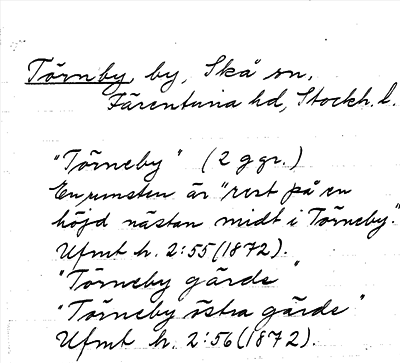 Törnby, by, Skå sn,
Färentuna hd, Stockh. l.
"Törneby" (2 ggr.)
En runsten är "rest på en
höjd nästan midt i Törneby."
Ufmt h. 2:55 (1872).
"Törneby gärde"
"Törneby östra gärde"
Ufmt h. 2:56 (1872).